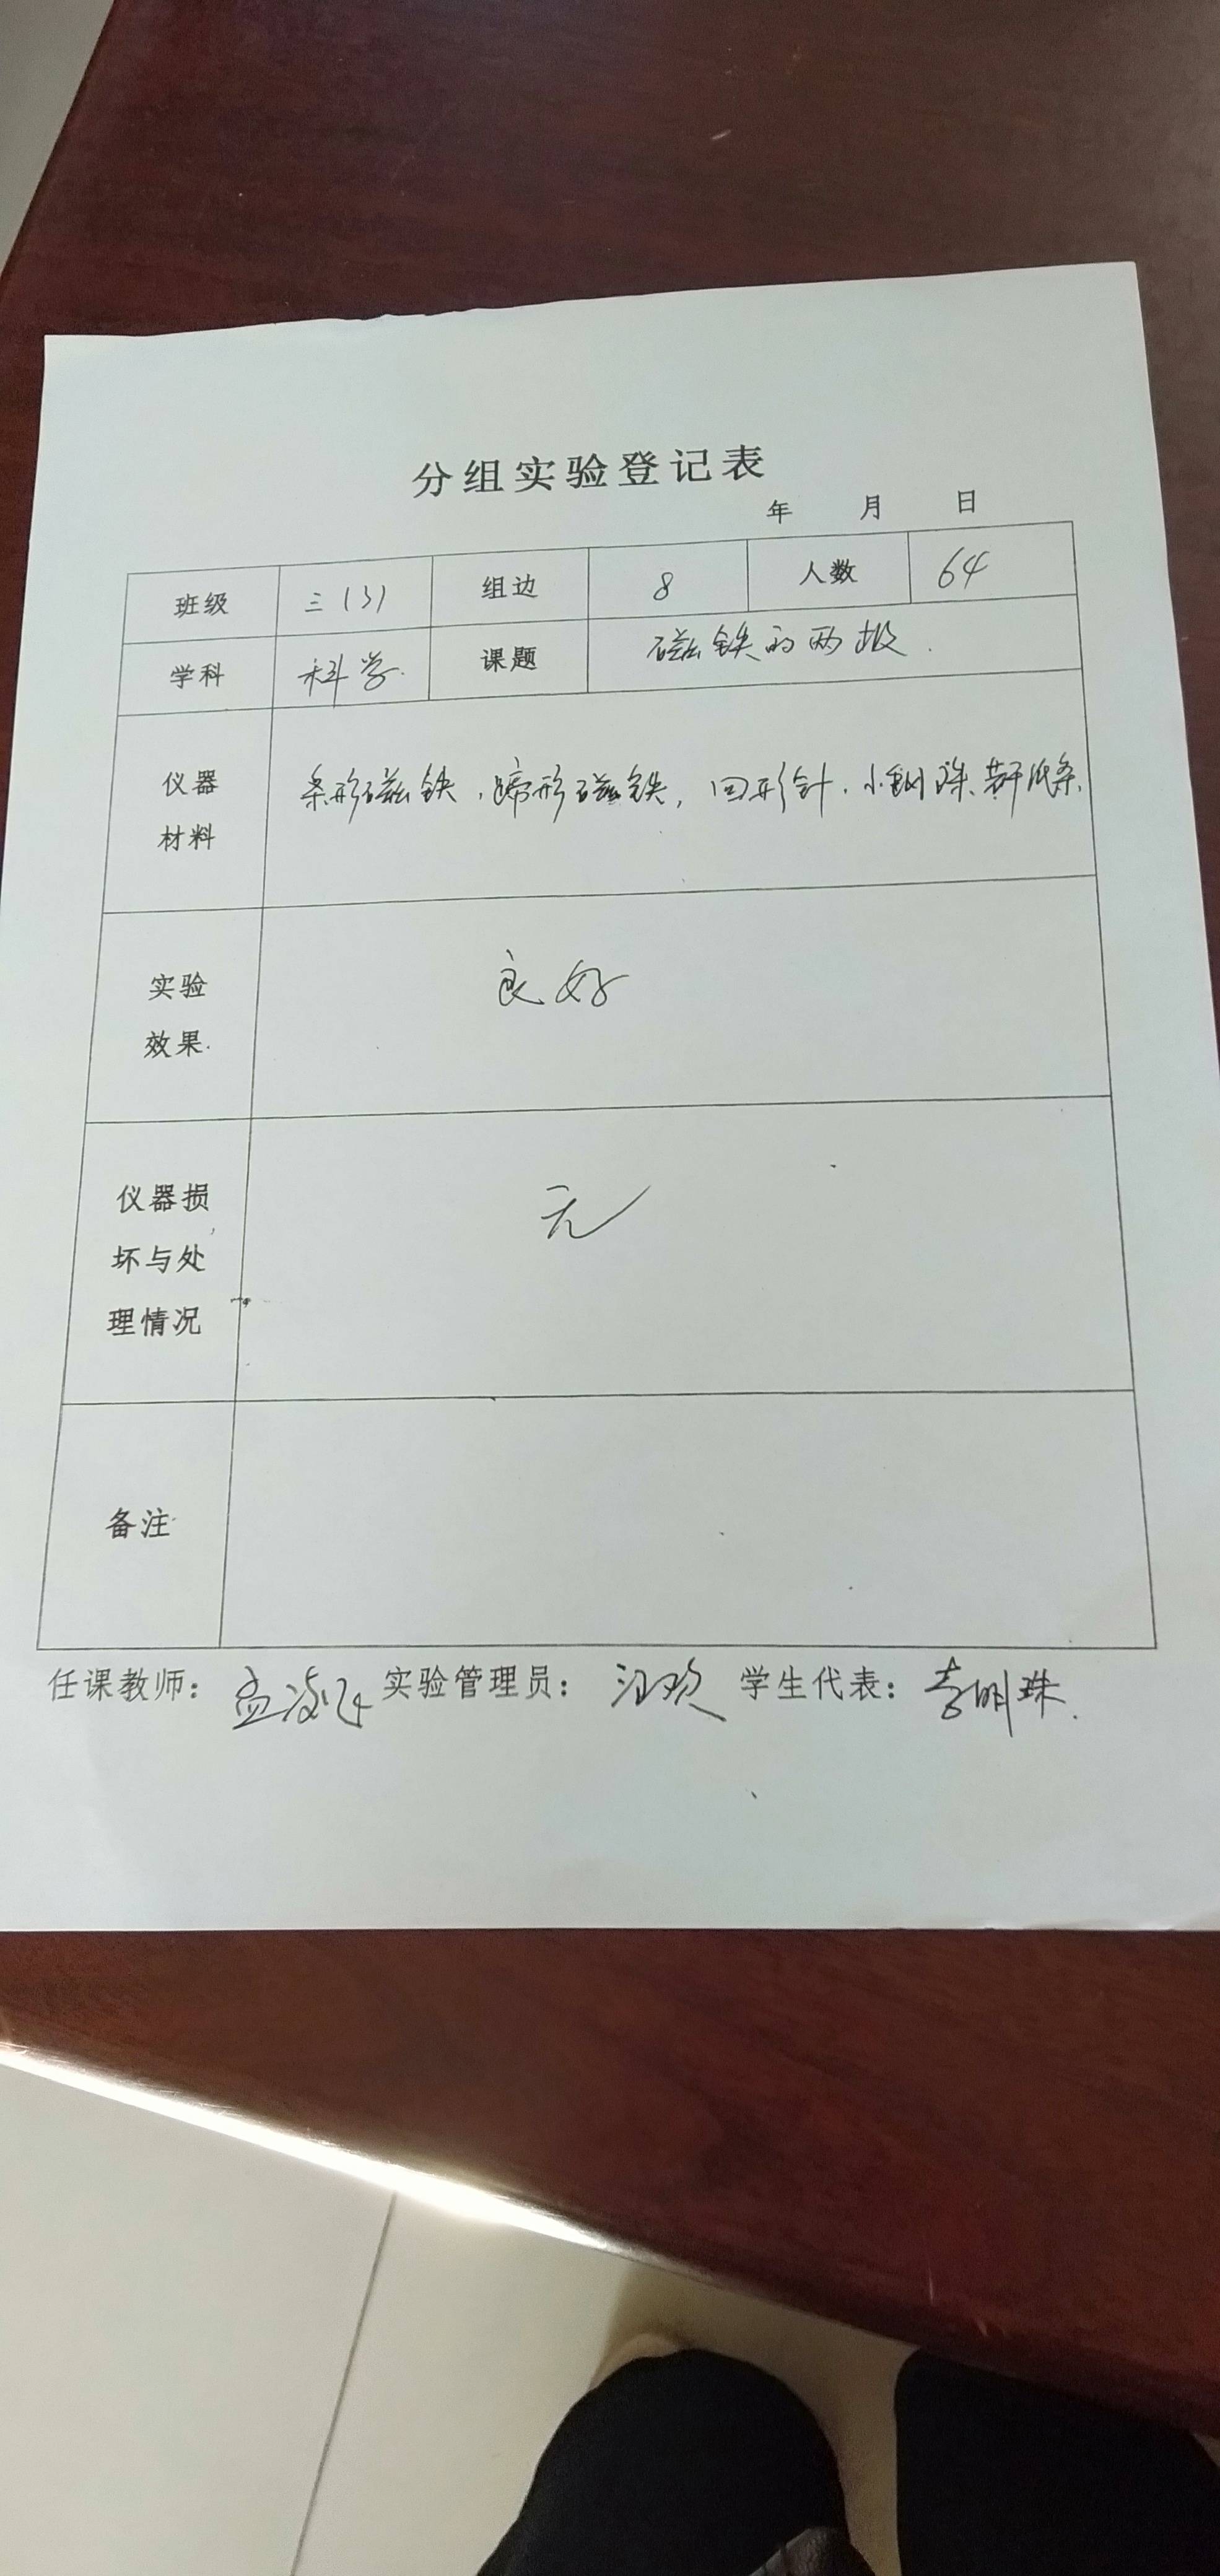 分组实验登记表
年 月 日
班级 三(3) 组边 8 人数 64
学科 科学. 课题 磁铁的两极.
仪器
材料
条形磁铁,蹄形磁铁,回形针.小钢珠.
实验
效果.
良好
仪器损
坏与处
理情况
无
备注
任课教师: 孟 实验管理员: 汪欢 学生代表: 李明珠.